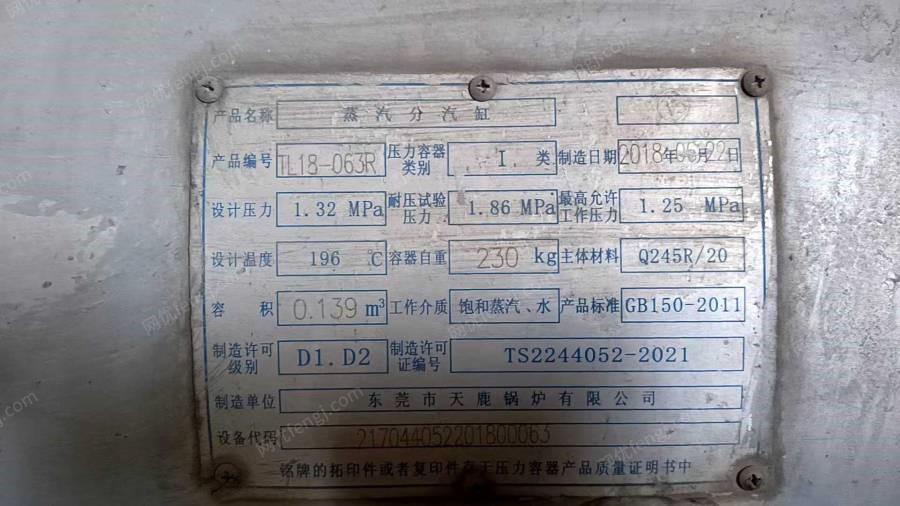 产品名称 蒸汽分汽缸
产品编号 TL18-063R 压力容器类别 I 类 制造日期 2018年05月22日
设计压力 1.32 MPa 耐压试验压力 1.86 MPa 最高允许工作压力 1.25 MPa
设计温度 196 C 容器自重 230 kg 主体材料 Q245R/20
容积 0.139 m³ 工作介质 饱和蒸汽、水 产品标准 GB150-2011
制造许可级别 D1.D2 制造许可证编号 TS2244052-2021
制造单位 东莞市天鹿锅炉有限公司
设备代码 217044052201800063
铭牌的拓印件或者复印件存于压力容器产品质量证明书中